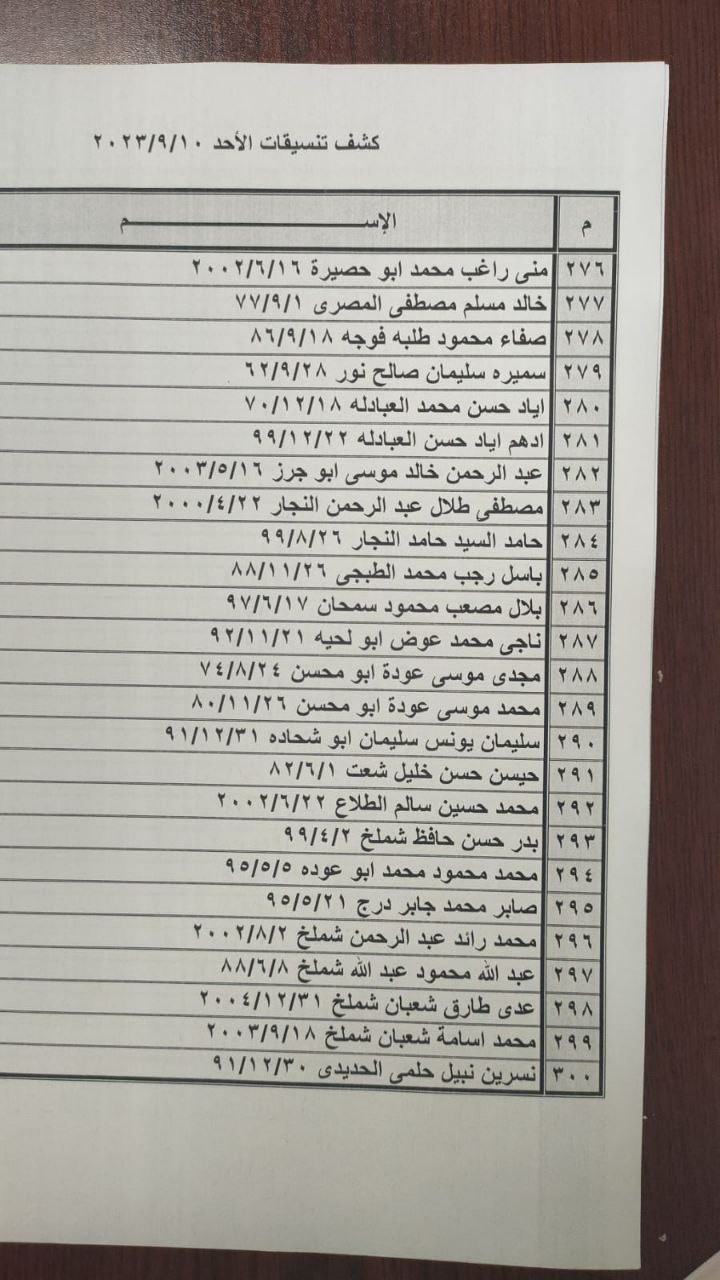 كشف تنسيقات الأحد ٢٠٢٣/٩/١٠
م الإســــــــــــم
٢٧٦ منى راغب محمد ابو حصيرة ٢٠٠٢/٦/١٦
٢٧٧ خالد مسلم مصطفى المصرى ٧٧/٩/١
٢٧٨ صفاء محمود طلبه فوجه ٨٦/٩/١٨
٢٧٩ سميره سليمان صالح نور ٦٢/٩/٢٨
٢٨٠ اياد حسن محمد العبادله ٧٠/١٢/١٨
٢٨١ ادهم اياد حسن العبادله ٩٩/١٢/٢٢
٢٨٢ عبد الرحمن خالد موسى ابو جرز ٢٠٠٣/٥/١٦
٢٨٣ مصطفى طلال عبد الرحمن النجار ٢٠٠٠/٤/٢٢
٢٨٤ حامد السيد حامد النجار ٩٩/٨/٢٦
٢٨٥ باسل رجب محمد الطبجى ٨٨/١١/٢٦
٢٨٦ بلال مصعب محمود سمحان ٩٧/٦/١٧
٢٨٧ ناجى محمد عوض ابو لحيه ٩٢/١١/٢١
٢٨٨ مجدى موسى عودة ابو محسن ٧٤/٨/٢٤
٢٨٩ محمد موسى عودة ابو محسن ٨٠/١١/٢٦
٢٩٠ سليمان يونس سليمان ابو شحاده ٩١/١٢/٣١
٢٩١ حيسن حسن خليل شعت ٨٢/٦/١
٢٩٢ محمد حسين سالم الطلاع ٢٠٠٢/٦/٢٢
٢٩٣ بدر حسن حافظ شملخ ٩٩/٤/٢
٢٩٤ محمد محمود محمد ابو عوده ٩٥/٥/٥
٢٩٥ صابر محمد جابر درج ٩٥/٥/٢١
٢٩٦ محمد رائد عبد الرحمن شملخ ٢٠٠٢/٨/٢
٢٩٧ عبد الله محمود عبد الله شملخ ٨٨/٦/٨
٢٩٨ عدى طارق شعبان شملخ ٢٠٠٤/١٢/٣١
٢٩٩ محمد اسامة شعبان شملخ ٢٠٠٣/٩/١٨
٣٠٠ نسرين نبيل حلمى الحديدى ٩١/١٢/٣٠